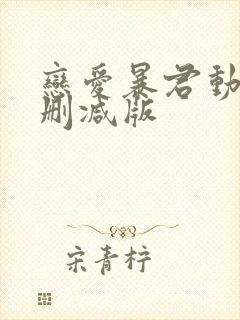 戀愛暴君動
刪減版
宋青柠